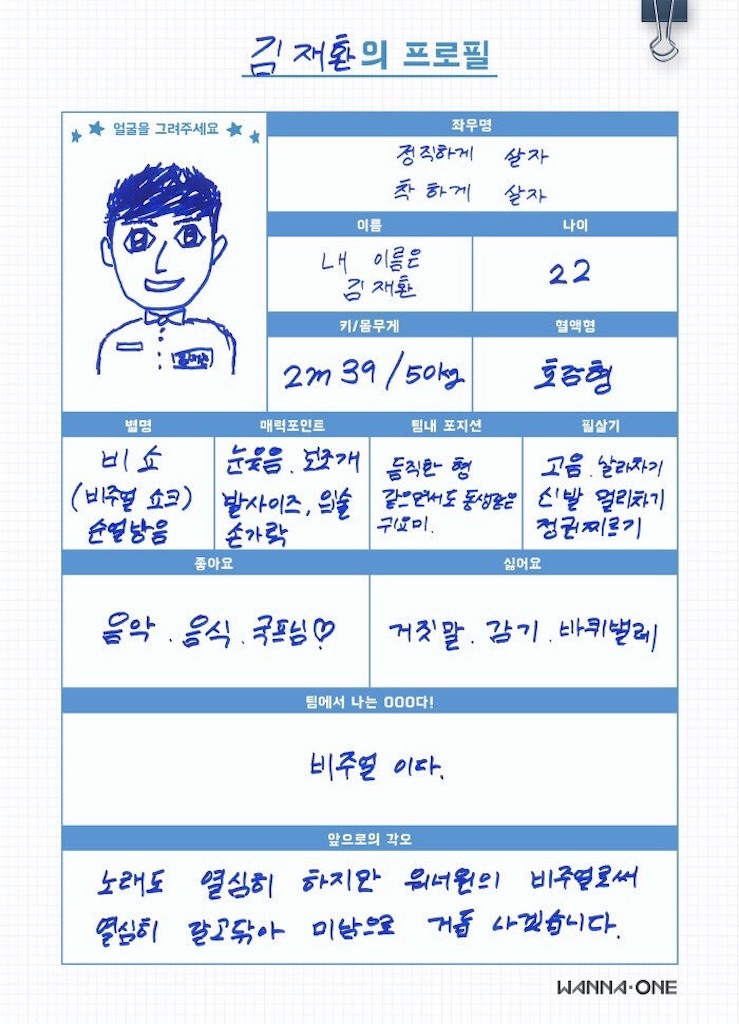 김재환의 프로필
얼굴을 그려주세요
좌우명
정직하게 살자
착하게 살자
이름
나이
내 이름은
김재환
22
키/몸무게
혈액형
2m 39/50kg
호감형
별명
매력포인트
팀내 포지션
필살기
비쇼
(비주얼 쇼크)
눈웃음. 보조개
발사이즈, 입술
손가락
듬직한 형
같으면서도 동생같은
귀요미.
고음. 날라차기
신발 멀리차기
정권찌르기
좋아요
싫어요
음악. 음식. 국프님♡
거짓말. 감기. 바퀴벌레
팀에서 나는 OOO다!
비주얼 이다.
앞으로의 각오
노래도 열심히 하지만 워너원의 비주얼로써
열심히 갈고닦아 미남으로 거듭 나겠습니다.
WANNA·ONE